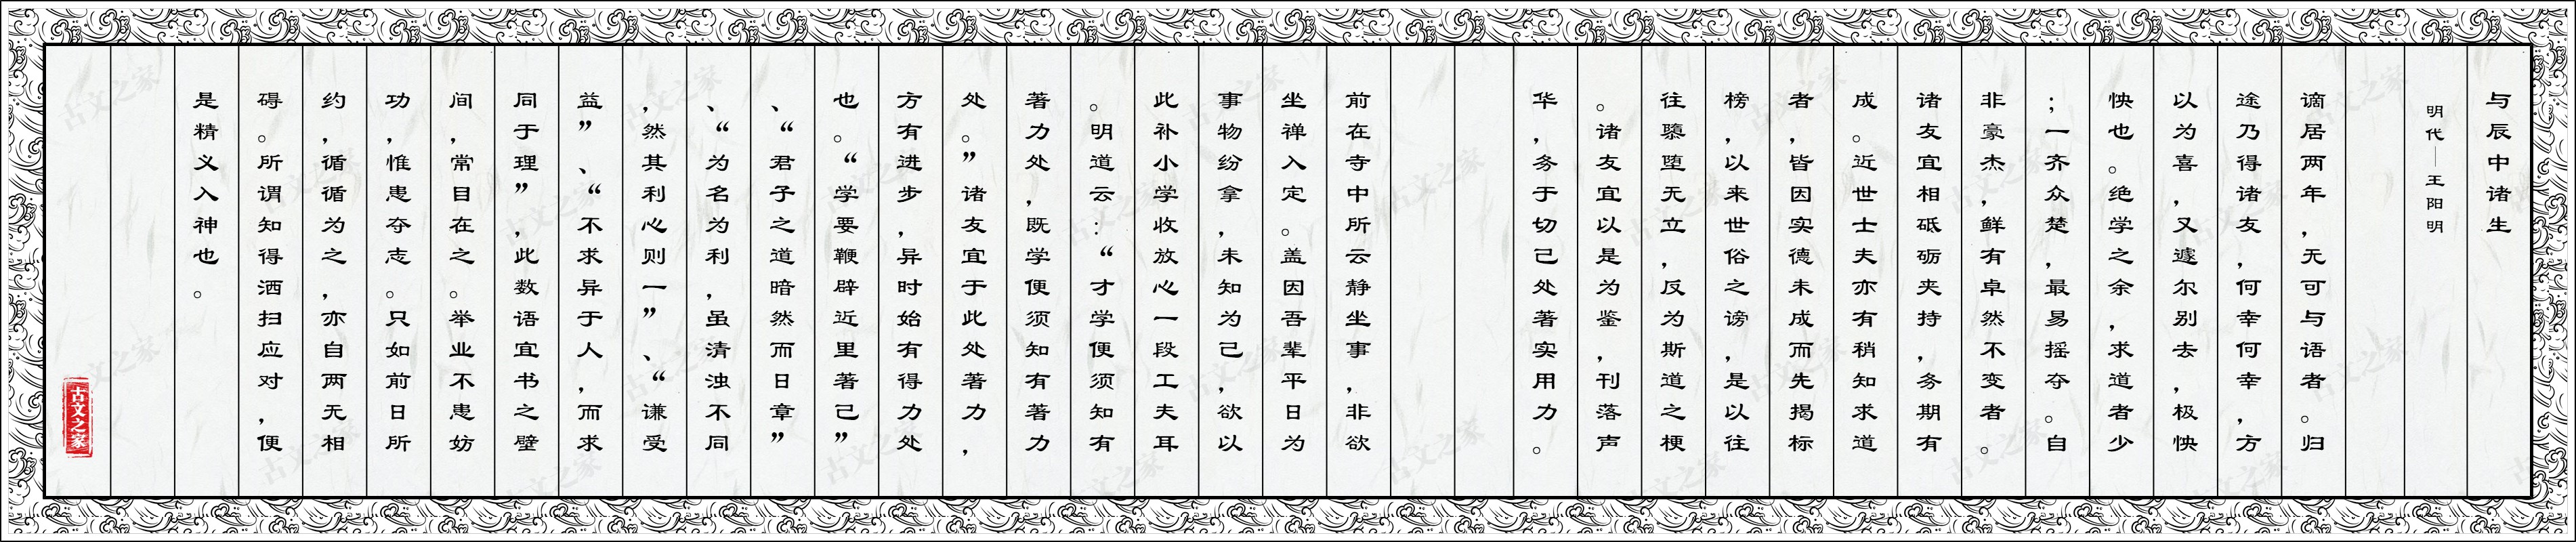 与辰中诸生
明代—王阳明
谪居两年，无可与语者。归
途乃得诸友，何幸何幸，方
以为喜，又遽尔别去，极怏
怏也。绝学之余，求道者少
；一齐众楚，最易摇夺。自
非豪杰，鲜有卓然不变者。
诸友宜相砥砺夹持，务期有
成。近世士夫亦有稍知求道
者，皆因实德未成而先揭标
榜，以来世俗之谤，是以往
往隳堕无立，反为斯道之梗
。诸友宜以是为鉴，刊落声
华，务于切己处著实用力。
前在寺中所云静坐事，非欲
坐禅入定。盖因吾辈平日为
事物纷拿，未知为己，欲以
此补小学收放心一段工夫耳
。明道云：“才学便须知有
著力处，既学便须知有著力
处。”诸友宜于此处著力，
方有进步，异时始有得力处
也。“学要鞭辟近里著己”
、“君子之道暗然而日章”
、“为名为利，虽清浊不同
，然其利心则一”、“谦受
益”、“不求异于人，而求
同于理”，此数语宜书之壁
间，常目在之。举业不患妨
功，惟患夺志。只如前日所
约，循循为之，亦自两无相
碍。所谓知得洒扫应对，便
是精义入神也。
古文之家